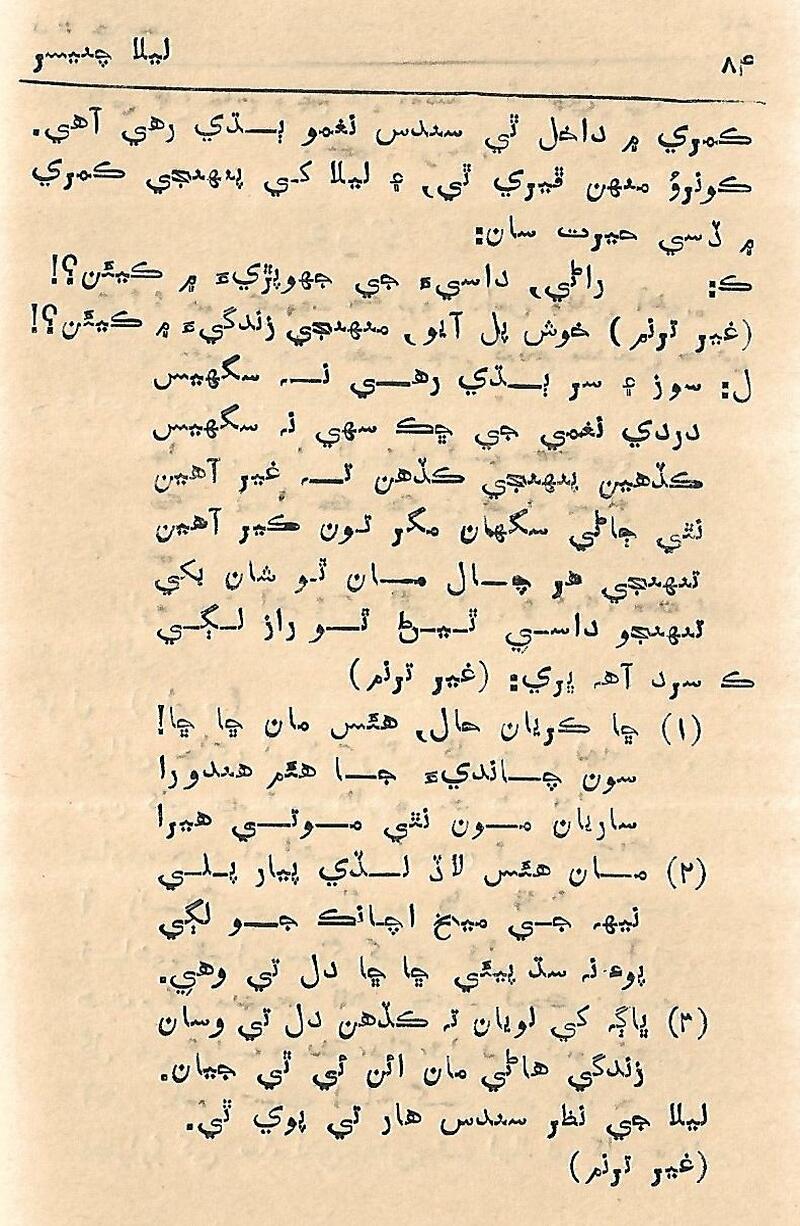 ۸۴
ليلا چنيسر
ڪمري ۾ داخل ٿي سندس نغمو ٻــڌي رهي آهي.
ڪونرؤ منهن ڦيري ٿي، ۽ ليلا کـي پنهنجي ڪمري
۾ ڏسي حيرت سان:
ڪ: راڻي، داسيءَ جي جهوپڙيءَ ۾ ڪيئن؟!
(غير ترنم) خوش پل آيو، منهنجي زندگيءَ ۾ ڪيئن؟!
ل: سوز ۽ سر ٻــڌي رهــي نــہ سگهيس
دردي نغمي جي ڇڪ سهي نہ سگهيس
ڪڏهين پنهنجي ڪڏهن تــہ غير آهين
نٿي ڄاڻي سگهان مگر تون ڪير آهين
تنهنجي هر چــال مــان ٿـو شان بکي
تنهنجو داسـي ٿـيـڻ ٿــو راز لـڳـي
ڪ سرد آهہ ڀري: (غير ترنم)
(۱) ڇا ڪريان حال، هئس مان ڇا ڇا!
سون چــانديءَ جــا هئم هندورا
ساريان مــون نٿي مــوتــي هيرا
(۲) مــان هئس لاڏ لــڏي پيار پــلــي
نيهہ جـي ميخ اچانڪ جــو لڳي
پوءِ نہ سڌ پيئي ڇا ڇا دل تي وهي.
(۳) ڀاڳہ کي لويان تہ ڪڏهن دل تي وسان
زندگي هاڻي مان ائن ئي ٿي جيان.
ليلا جي نظر سندس هار تي پوي ٿي.
(غير ترنم)